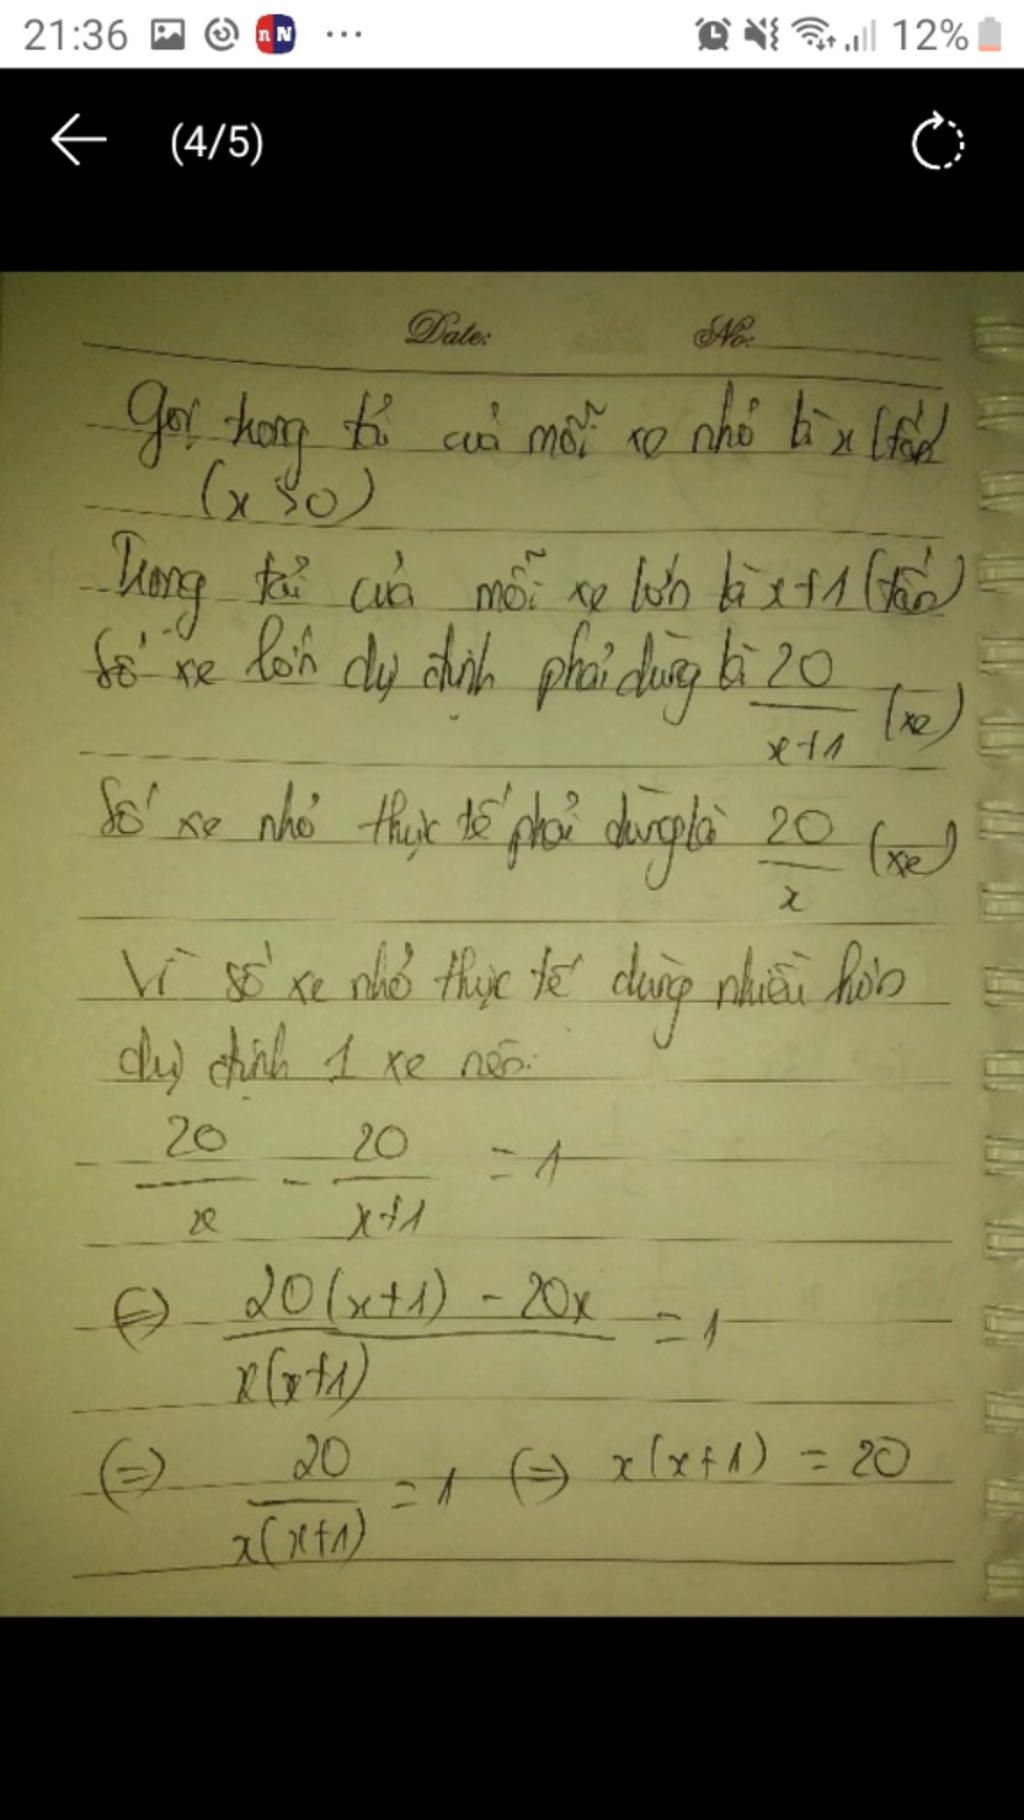 21:36 nN ... 12%
(4/5)
Date: No:
Gọi trọng tải của mỗi xe nhỏ là x (tấn)
(x > 0)
Trọng tải của mỗi xe lớn là x+1 (tấn)
Số xe lớn dự định phải dùng là 20/x+1 (xe)
Số xe nhỏ thực tế phải dùng là 20/x (xe)
Vì số xe nhỏ thực tế dùng nhiều hơn
dự định 1 xe nên:
20/x - 20/x+1 = 1
(=) 20(x+1) - 20x/x(x+1) = 1
(=) 20/x(x+1) = 1 (=) x(x+1) = 20